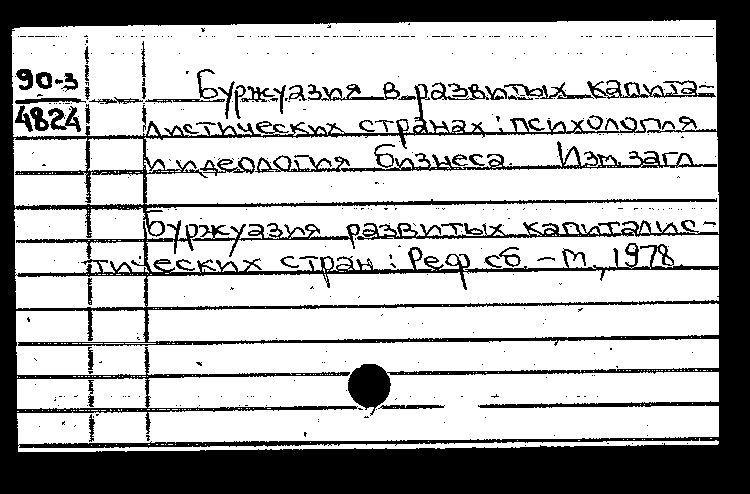 90-3
4824
Буржуазия в развитых капита-
листических странах: психология
и идеология бизнеса. Изм. загл.
Буржуазия развитых капиталис-
тических стран: Реф. сб. - М., 1978